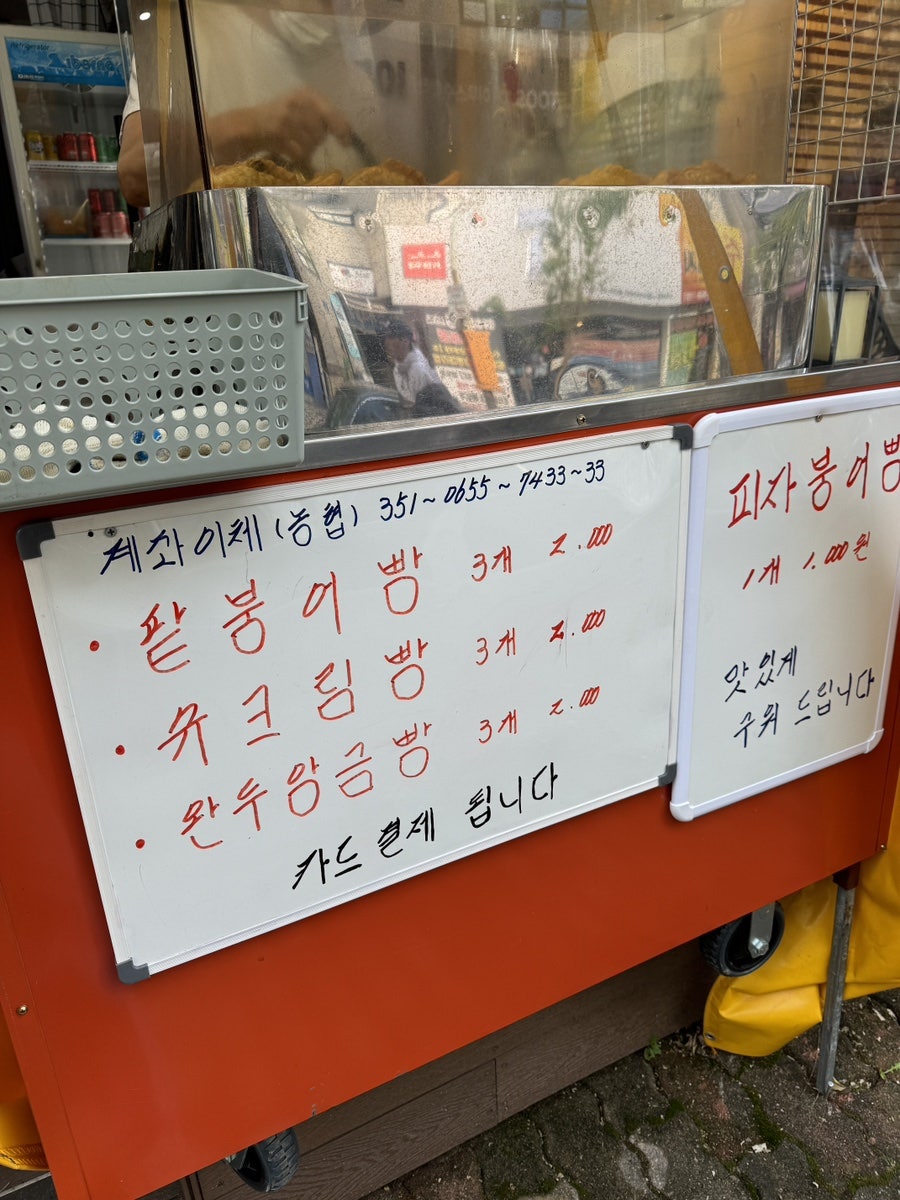 Refrigerator
계좌이체 (농협) 351~0655~7433~33
• 팥붕어빵 3개 2.000
• 슈크림빵 3개 2.000
• 완두앙금빵 3개 2.000
카드결제 됩니다
피자붕어빵
1개 1.000원
맛있게
구워 드립니다